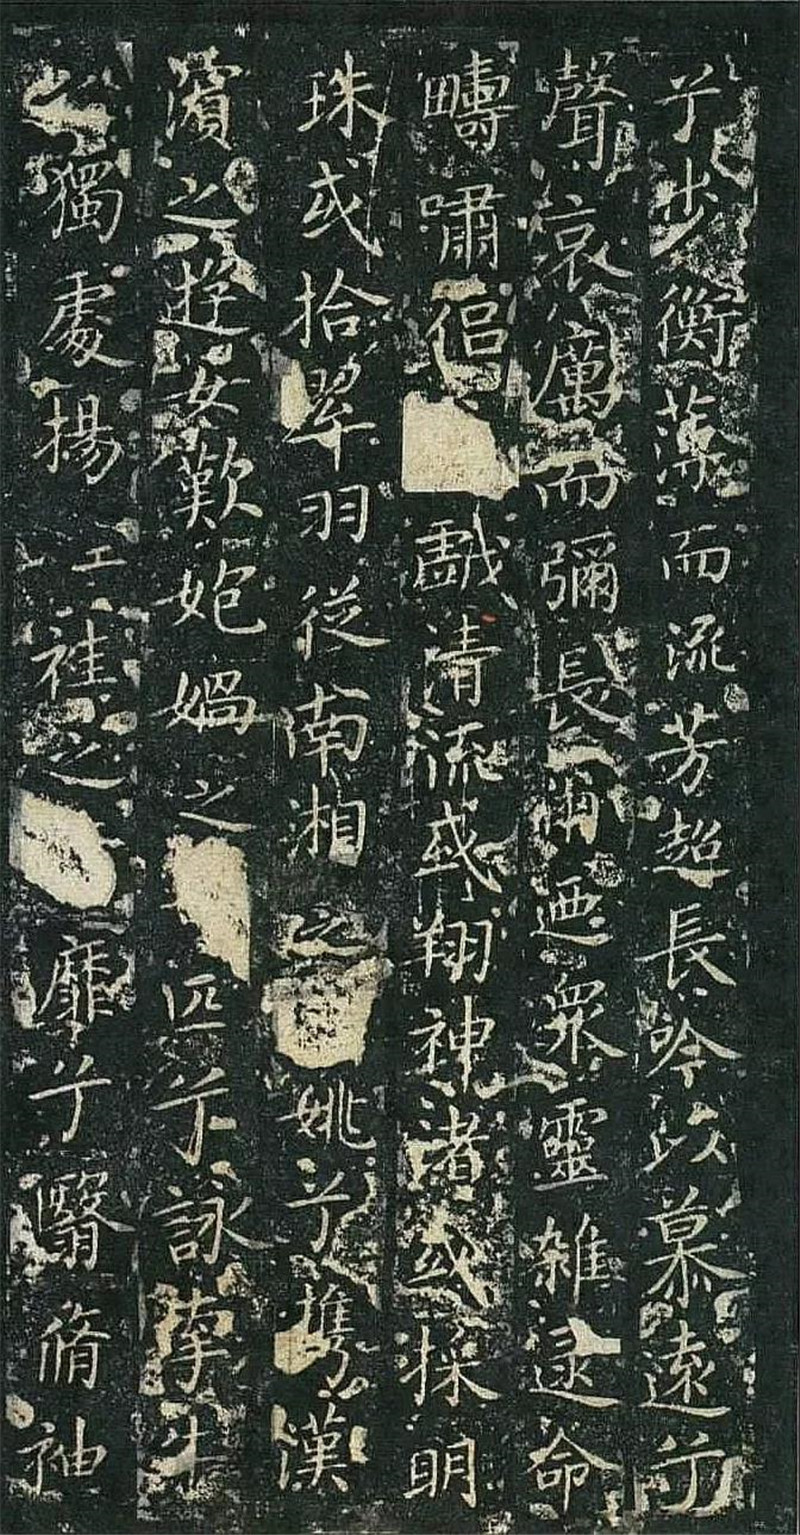 兮步衡薄而流芳超長吟以慕遠兮
聲哀厲而彌長爾迺衆靈雜逯命
疇嘯侣戲清流或翔神渚或採明
珠或拾翠羽從南湘之姚兮攜漢
濱之遊女歎㚿媧之匹兮詠牽牛
之獨處揚工袿之靡兮翳脩袖